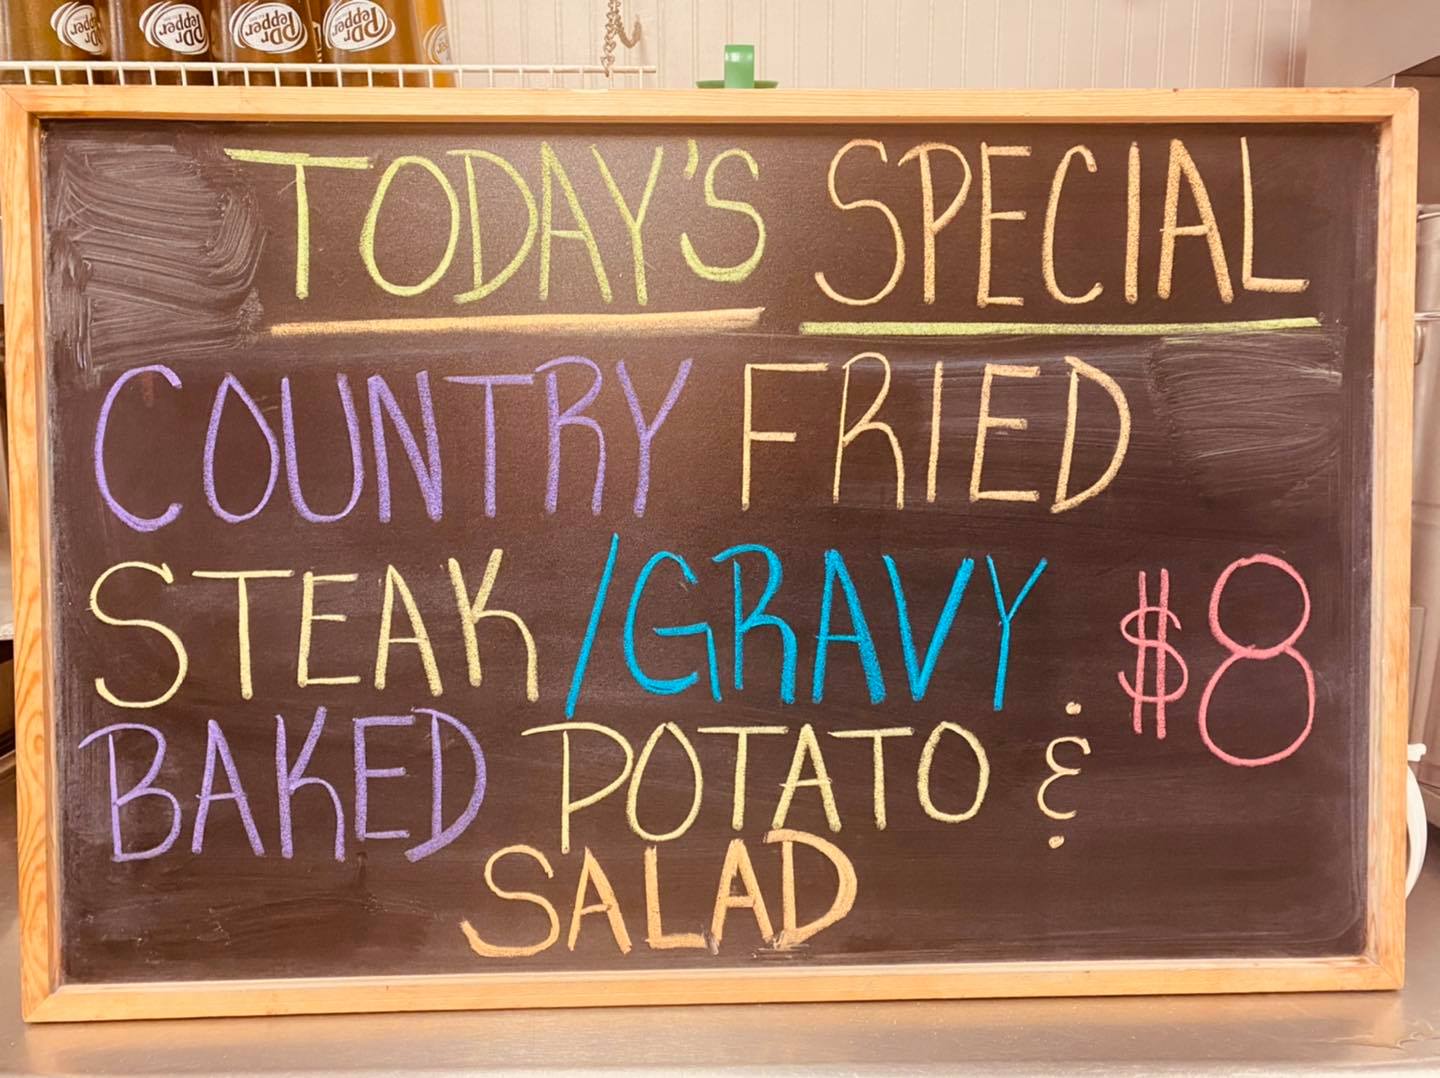 Dr Pepper Dr Pepper Dr Pepper Dr Pepper
TODAY'S SPECIAL
COUNTRY FRIED
STEAK /GRAVY $8
BAKED POTATO &
SALAD